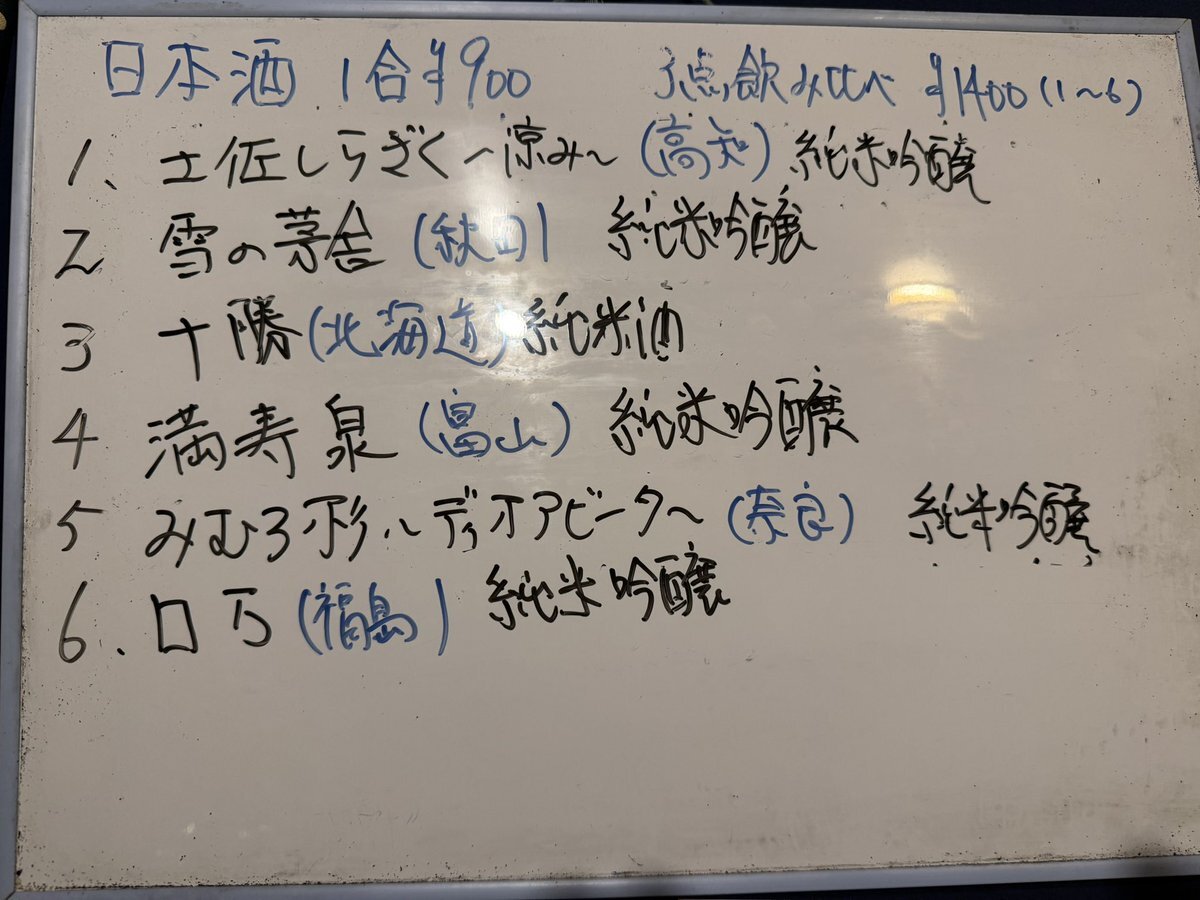 日本酒 1合¥900 3点飲み比べ ¥1400(1〜6)
1、土佐しらぎく〜涼み〜(高知)純米吟醸
2 雪の茅舎(秋田)純米吟醸
3 十勝(北海道)純米酒
4 満寿泉(富山)純米吟醸
5 みむろ杉〜ディオアビータ〜(奈良)純米吟醸
6、ロ万(福島)純米吟醸